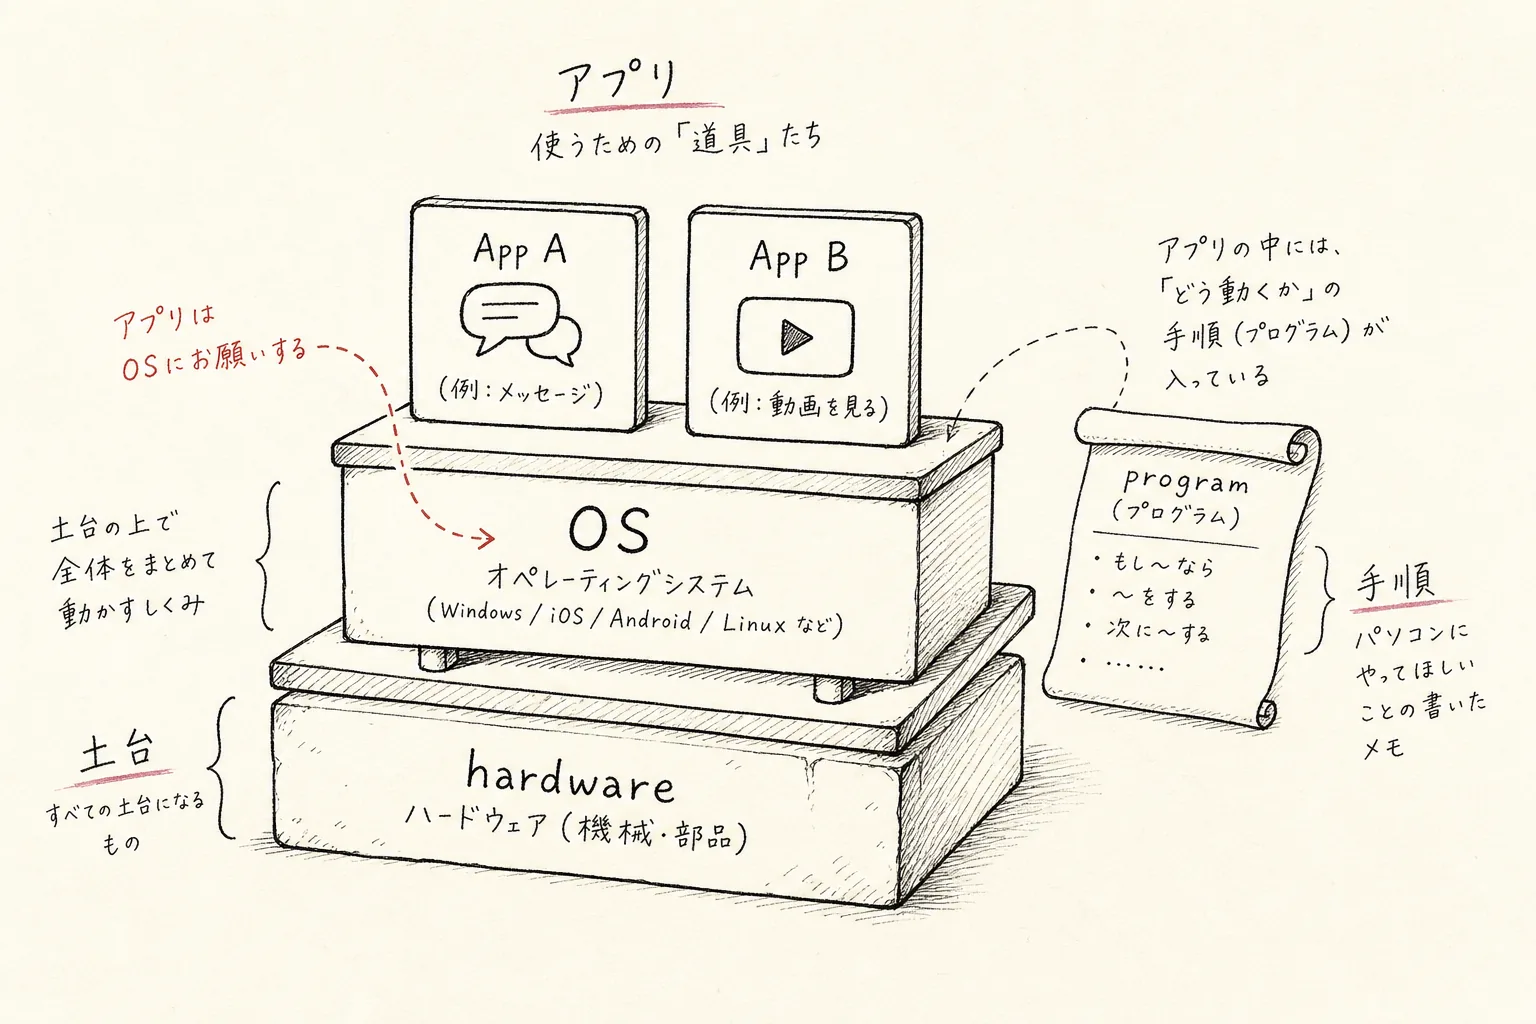 アプリ
使うための「道具」たち
App A
(例：メッセージ)
App B
(例：動画を見る)
アプリは
OSにお願いする
アプリの中には、
「どう動くか」の
手順(プログラム)が
入っている
OS
オペレーティングシステム
(Windows / iOS / Android / Linux など)
土台の上で
全体をまとめて
動かすしくみ
program
(プログラム)
・もし～なら
・～をする
・次に～する
・……
手順
パソコンに
やってほしい
ことの書いた
メモ
土台
すべての土台になる
もの
hardware
ハードウェア(機械・部品)